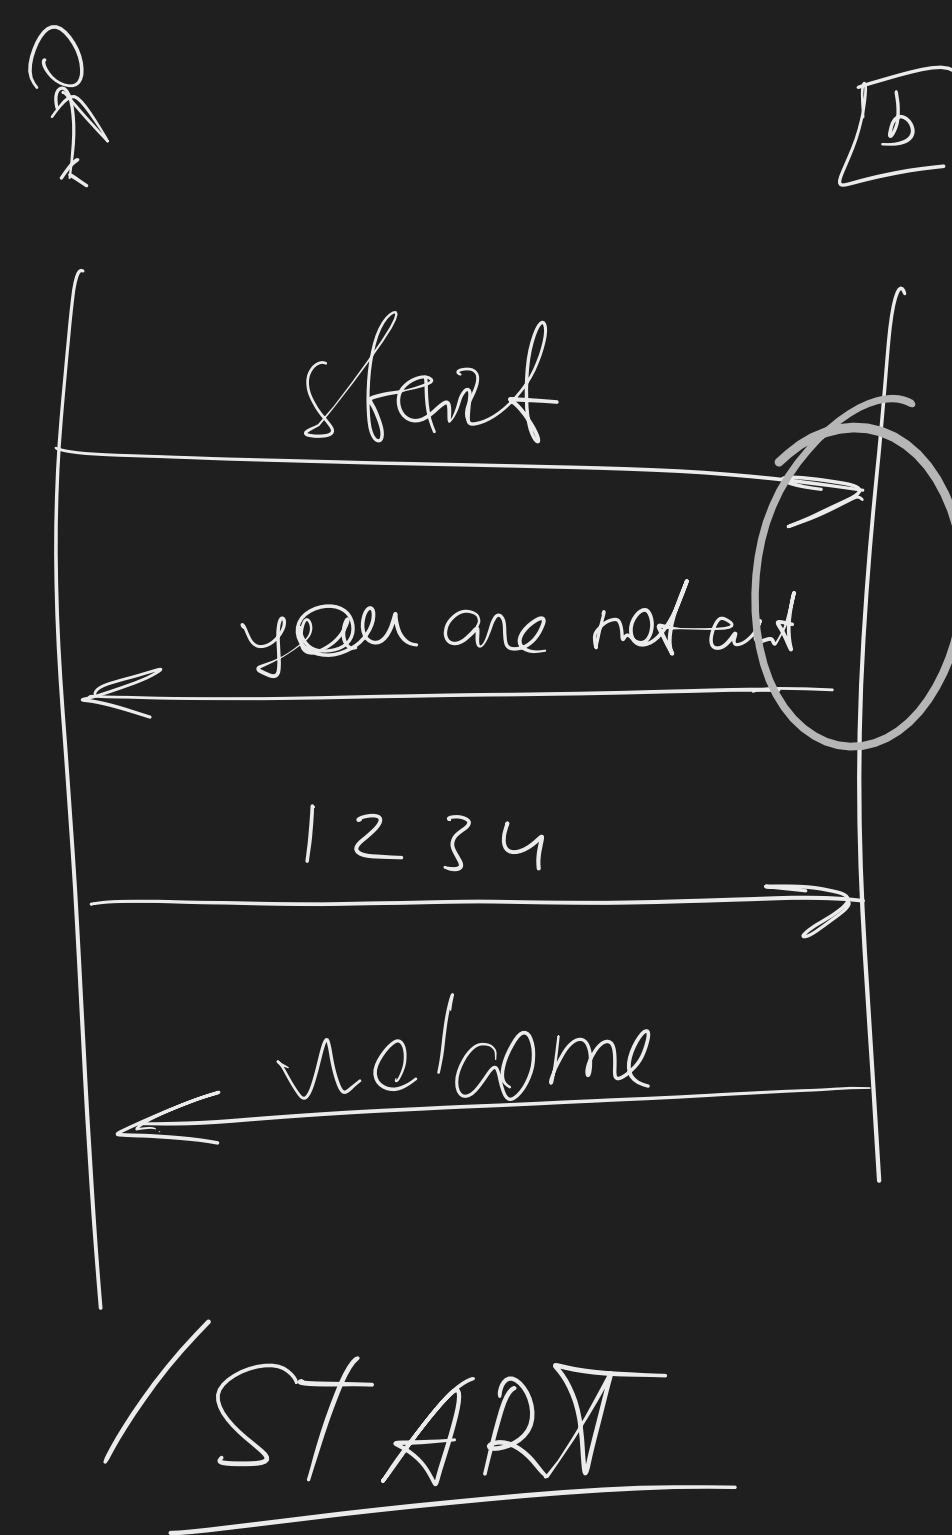 b
start
you are not aut
1 2 3 4
welcome
/START